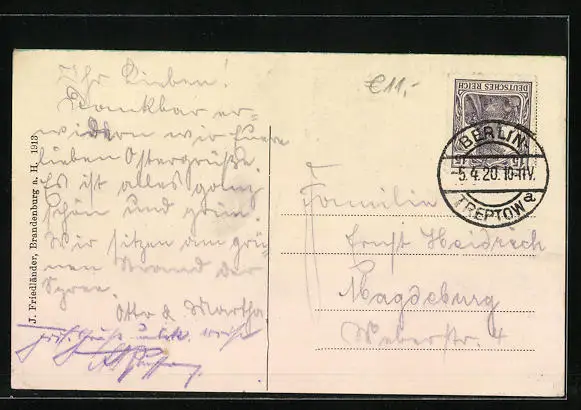 Ihr Lieben!
Dankbar er=
widern wir Euere
lieben Ostergrüße.
Es ist alles ganz
schön und grün.
Wir sitzen am grü=
nen Strand der
Spree.
Otto & Martha.
J. Friedländer, Brandenburg a. H. 1913
€11,-
DEUTSCHES REICH
15 15
BERLIN-
-5.4.20.10-11V.
TREPTOW a
Familie
Ernst Heidrich
Magdeburg
Weberstr. 4